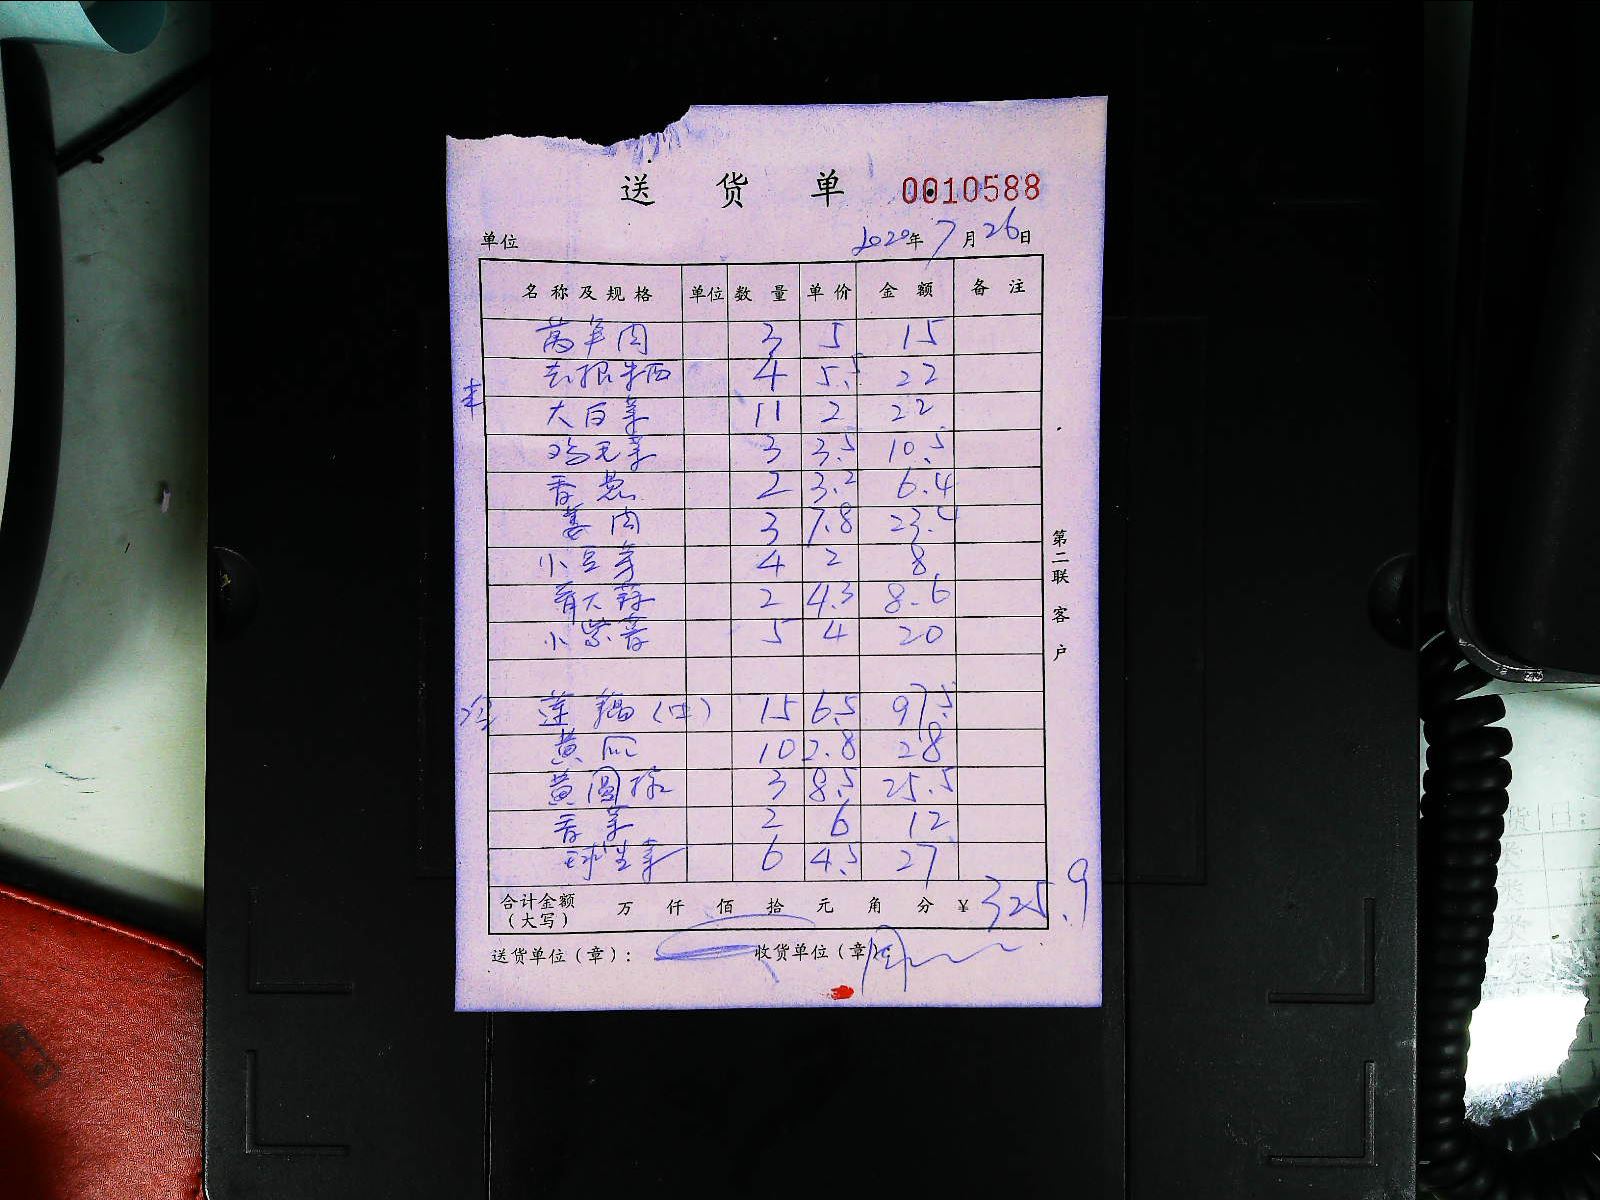 送货单 0010588
单位 2020年7月26日
名称及规格 单位 数量 单价 金额 备注
莴笋肉 3 5 15
去根牛西 4 5.5 22
大白菜 11 2 22
鸡毛菜 3 3.5 10.5
香葱 2 3.2 6.4
姜肉 3 7.8 23.4
小豆芽 4 2 8
青大蒜 2 4.3 8.6
小紫薯 5 4 20
莲藕(中) 15 6.5 97.5
黄瓜 10 2.8 28
黄圆椒 3 8.5 25.5
香菜 2 6 12
球生菜 6 4.5 27
合计金额(大写) 万 仟 佰 拾 元 角 分 ¥ 325.9
送货单位(章): 收货单位(章):
第二联 客户